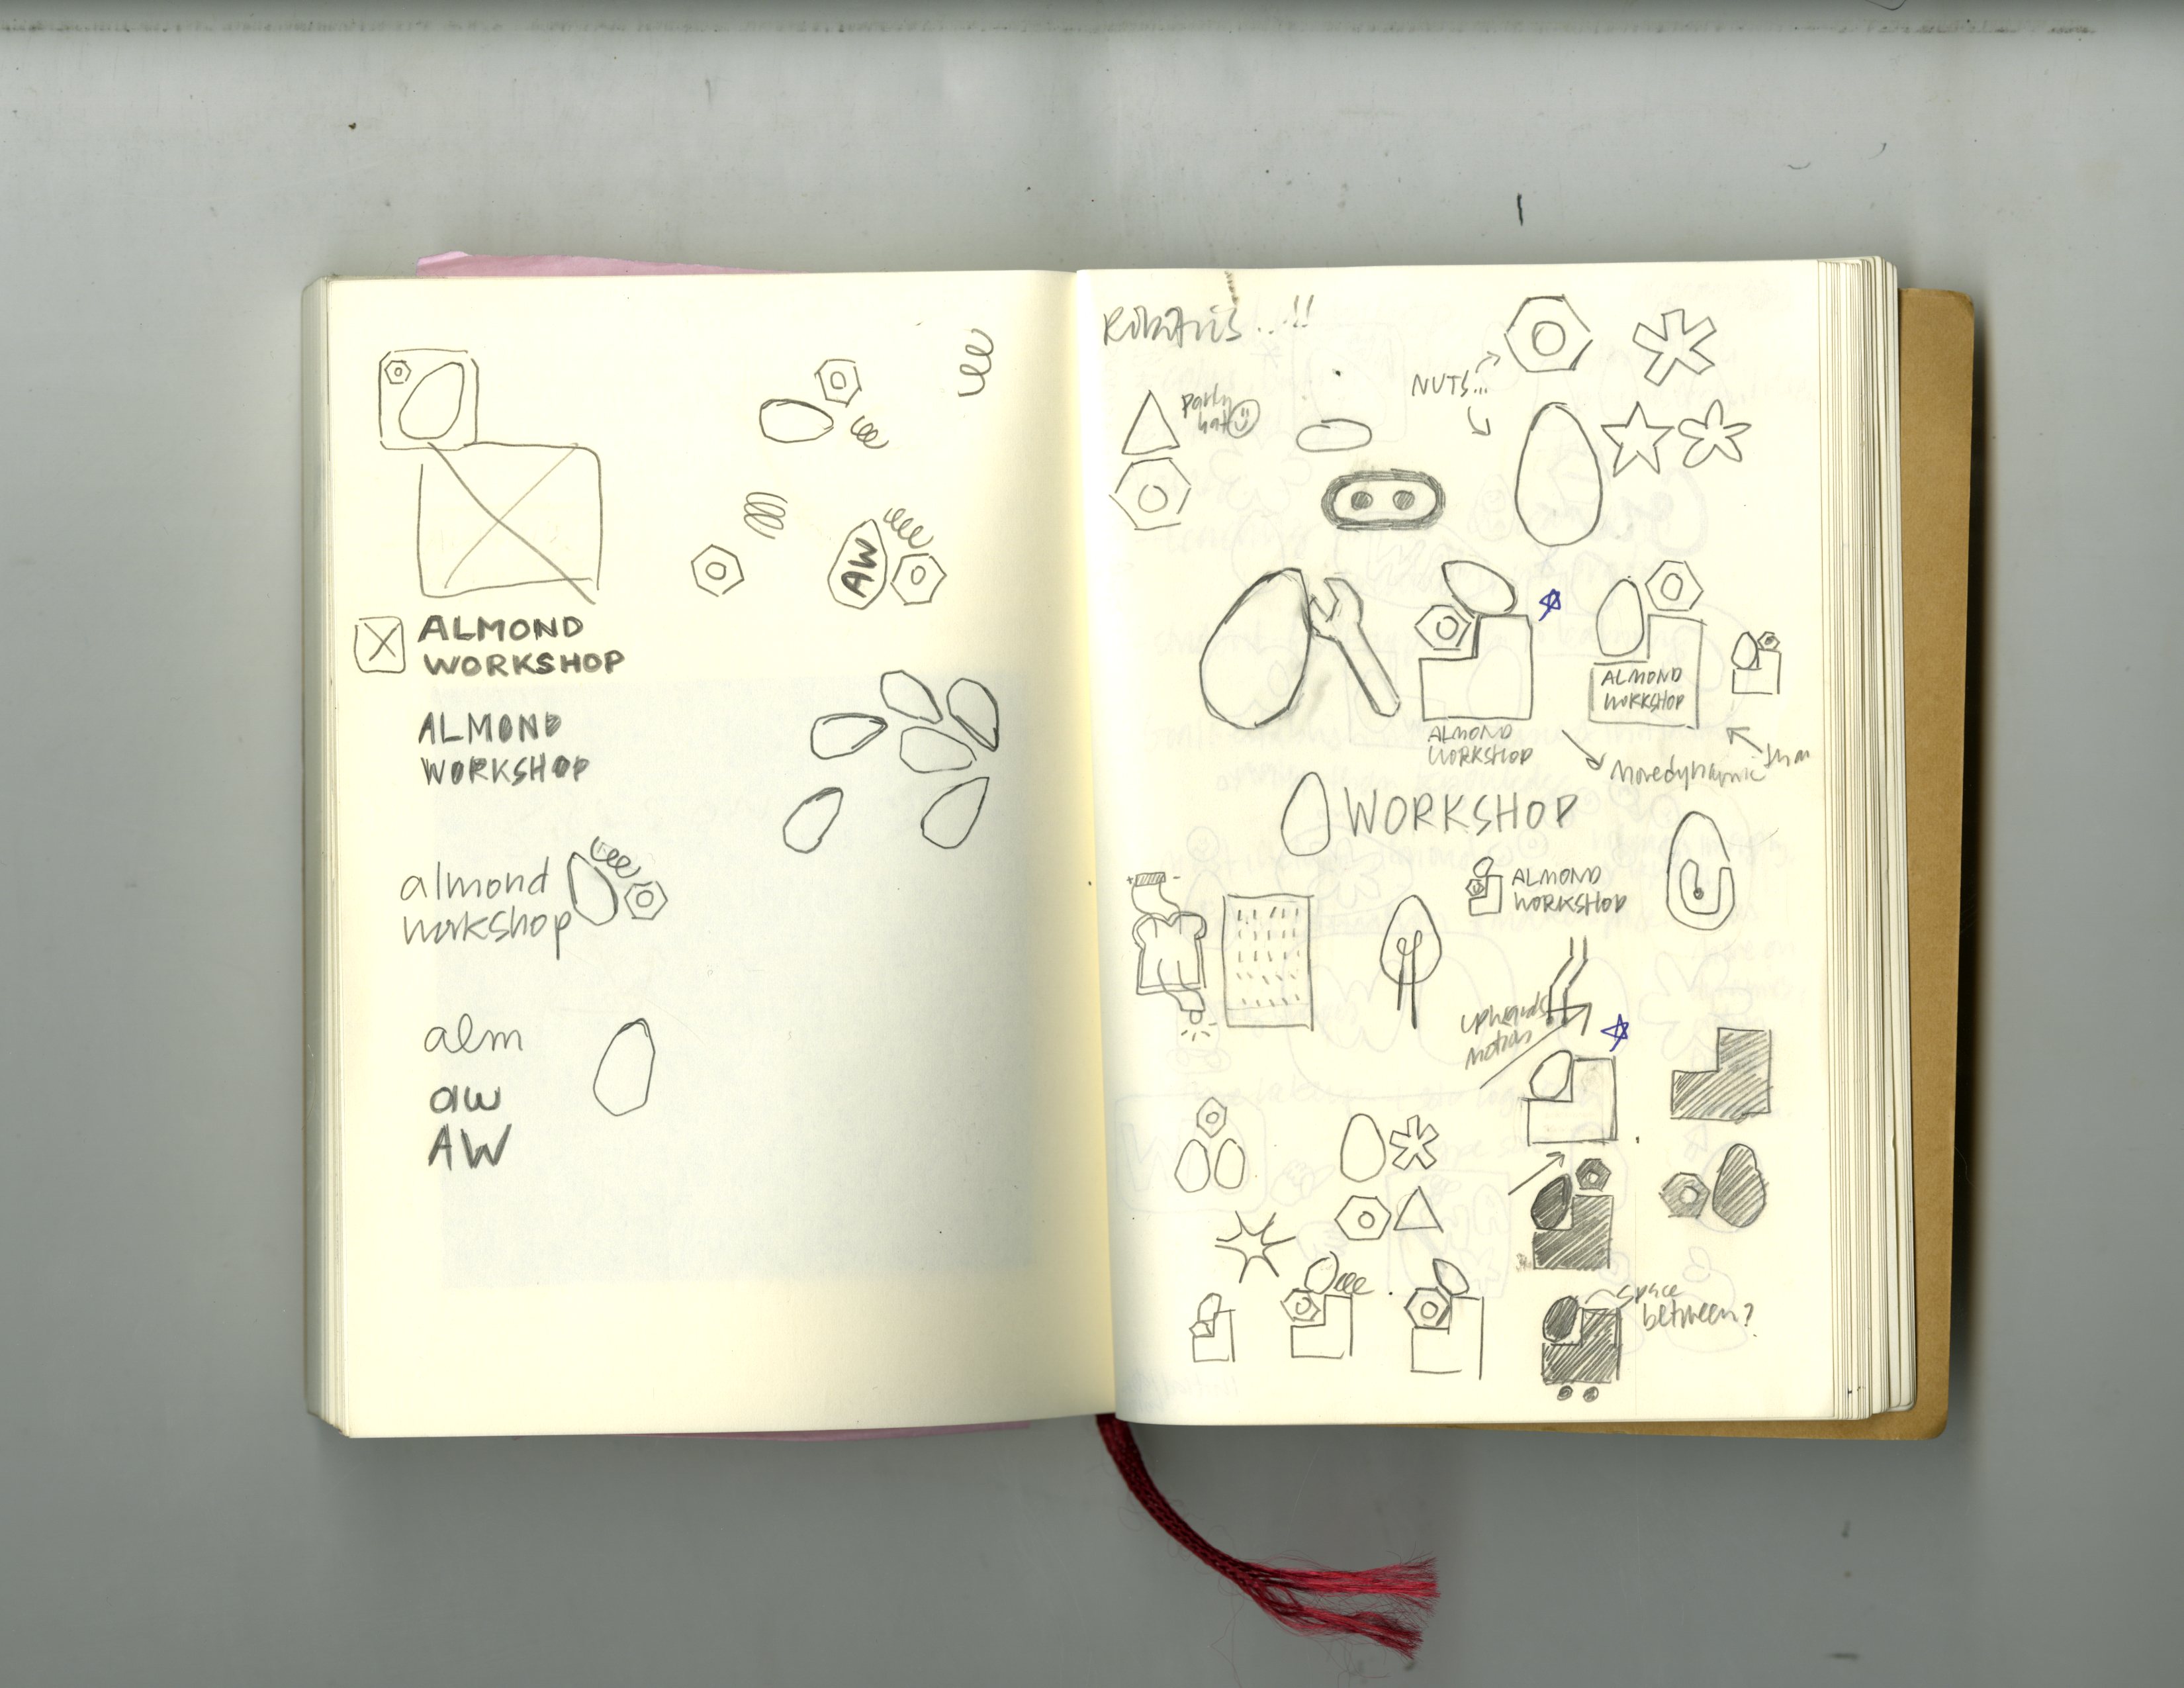 ALMOND
WORKSHOP
ALMOND
WORKSHOP
almond
workshop
AW
alm
aw
AW
ROBOTICS...!!
NUTS...
party
hat
ALMOND
WORKSHOP
ALMOND
WORKSHOP
More dynamic
than
WORKSHOP
ALMOND
WORKSHOP
+ -
upwards
motion
space
between?